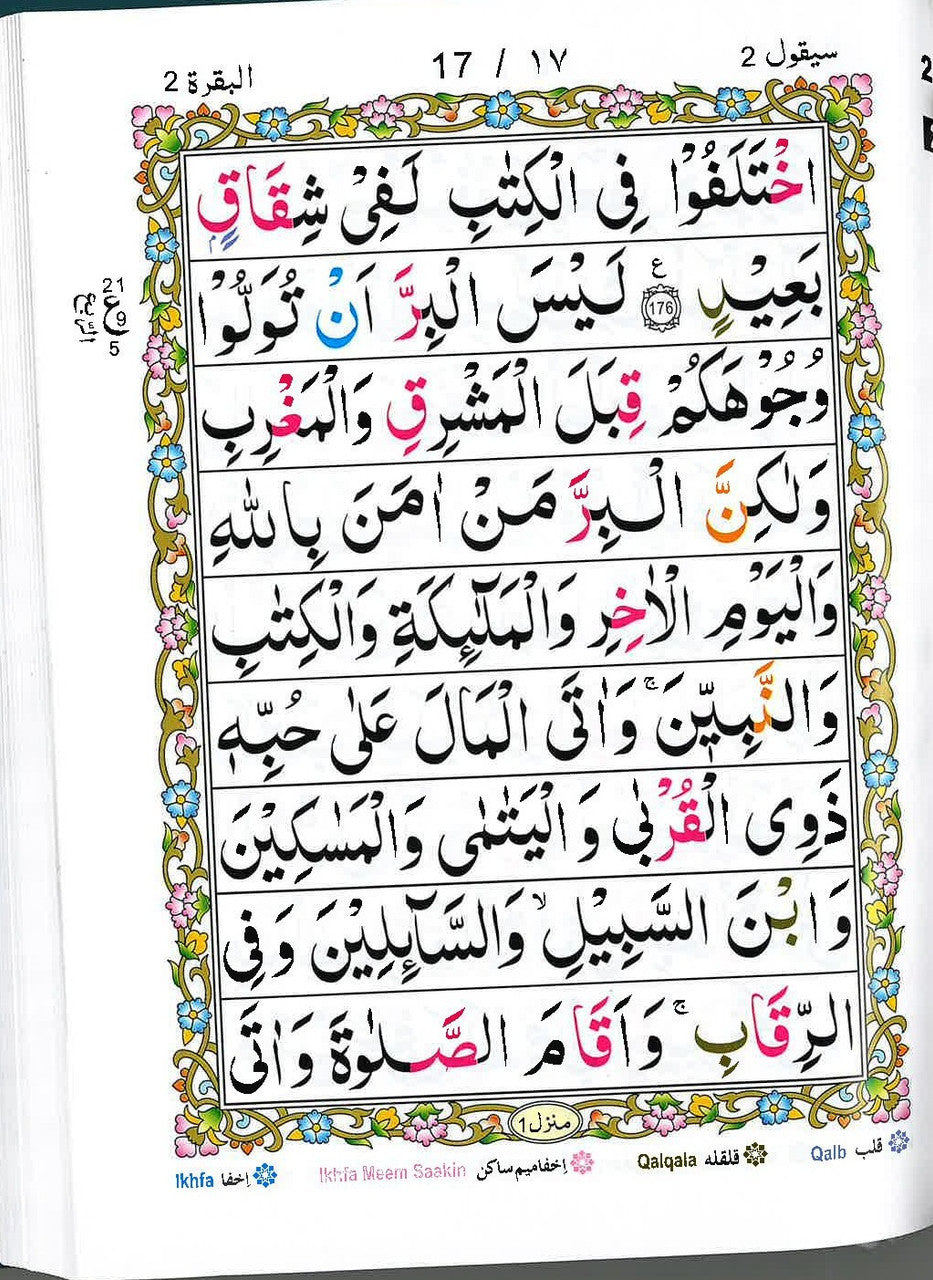 سيقول 2
17 / ١٧
البقرة 2
اخْتَلَفُوْا فِى الْكِتٰبِ لَفِىْ شِقَاقٍۭ
بَعِيْدٍ ۧ 176 لَيْسَ الْبِرَّ اَنْ تُوَلُّوْا
وُجُوْهَكُمْ قِبَلَ الْمَشْرِقِ وَالْمَغْرِبِ
وَلٰكِنَّ الْبِرَّ مَنْ اٰمَنَ بِاللّٰهِ
وَالْيَوْمِ الْاٰخِرِ وَالْمَلٰٓئِكَةِ وَالْكِتٰبِ
وَالنَّبِيّٖنَ ۚ وَاٰتَى الْمَالَ عَلٰى حُبِّهٖ
ذَوِى الْقُرْبٰى وَالْيَتٰمٰى وَالْمَسٰكِيْنَ
وَابْنَ السَّبِيْلِ ۙ وَالسَّآئِلِيْنَ وَفِى
الرِّقَابِ ۚ وَاَقَامَ الصَّلٰوةَ وَاٰتَى
21
ع 9
5
الربع
منزل 1
قلب Qalb
قلقله Qalqala
إخفا ميم ساكن Ikhfa Meem Saakin
إخفا Ikhfa
2